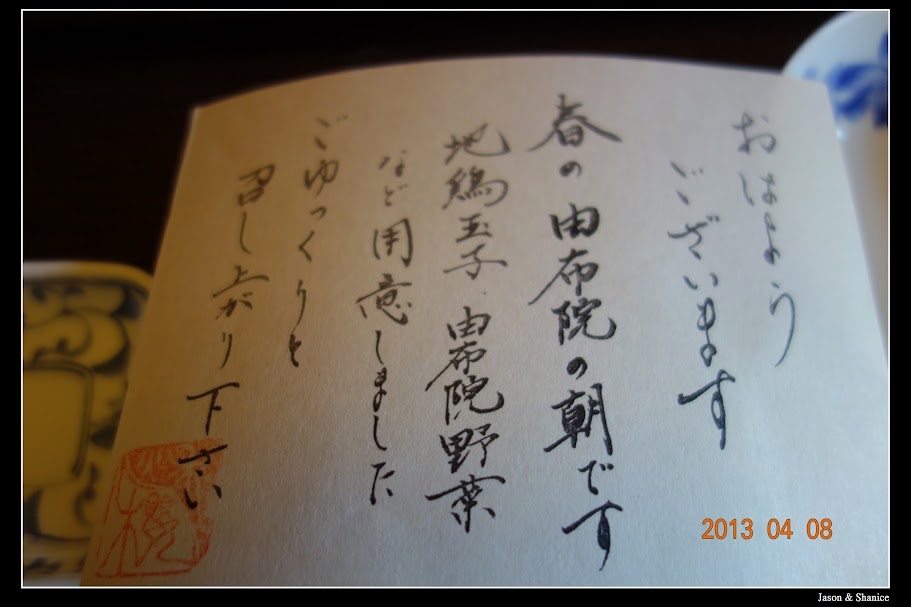 おはよう
ございます
春の由布院の朝です
地鶏玉子、由布院野菜
など用意しました
ごゆっくりと
召し上がり下さい
2013 04 08
Jason & Shanice